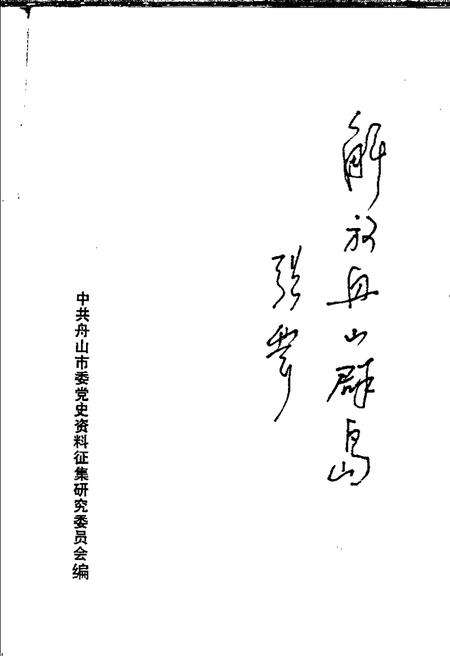 解放舟山群岛
张震
中共舟山市委党史资料征集研究委员会编